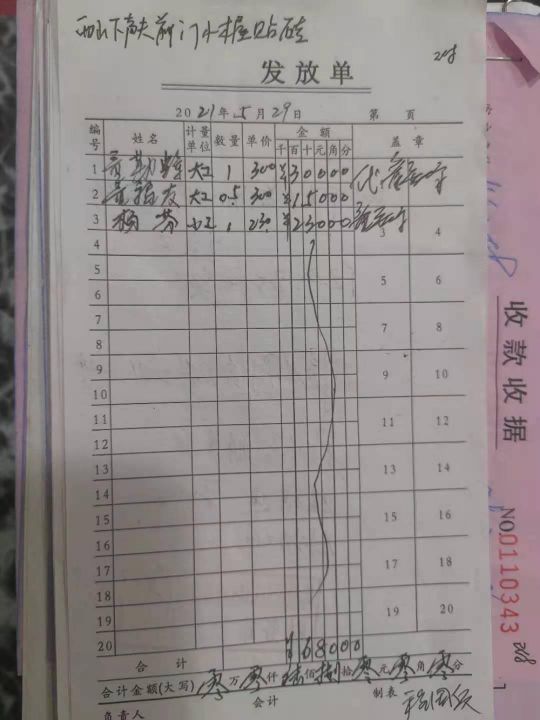 发放单
2021年5月29日 第 页
编号 姓名 计量单位 数量 单价 金额 盖章
千百十元角分
1 大工 1 300 ¥30000
2 大工 0.5 300 ¥15000
3 杨芬 小工 1 230 ¥23000 3 4
4
5 5 6
6
7 7 8
8
9 9 10
10
11 11 12
12
13 13 14
14
15 15 16
16
17 17 18
18
19 19 20
20
合计 ¥68000
合计金额(大写) 零万零仟陆佰捌拾零元零角零分
负责人 会计 制表
收款收据
NO.0110343